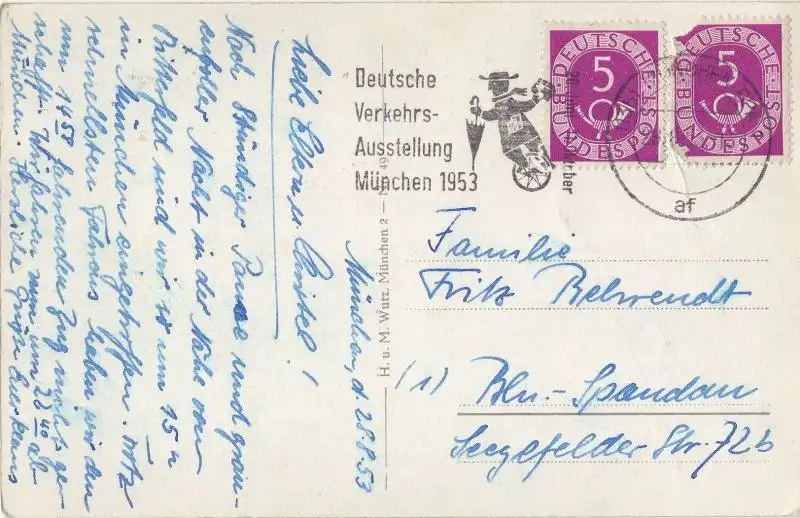 München, d. 28.8.53
Liebe Eltern u. Christel!
Nach 8stündiger Pause und grau-
envoller Nacht in der Nähe von
Bitterfeld sind wir so um 15 u
in München eingetroffen. Trotz
schnellstem Fahrens haben wir den
um 14 58 fahrenden Zug nicht ge-
schafft. Wir fahren nun um 23 40 ab
München. Herzliche Grüße
H. u. M. Wutz, München 2 —
Deutsche
Verkehrs-
Ausstellung
München 1953
DEUTSCHE BUNDESPOST
5
DEUTSCHE BUNDESPOST
5
af
Familie
Fritz Behrendt
(1) Bln.-Spandau
Seegefelder Str. 72b